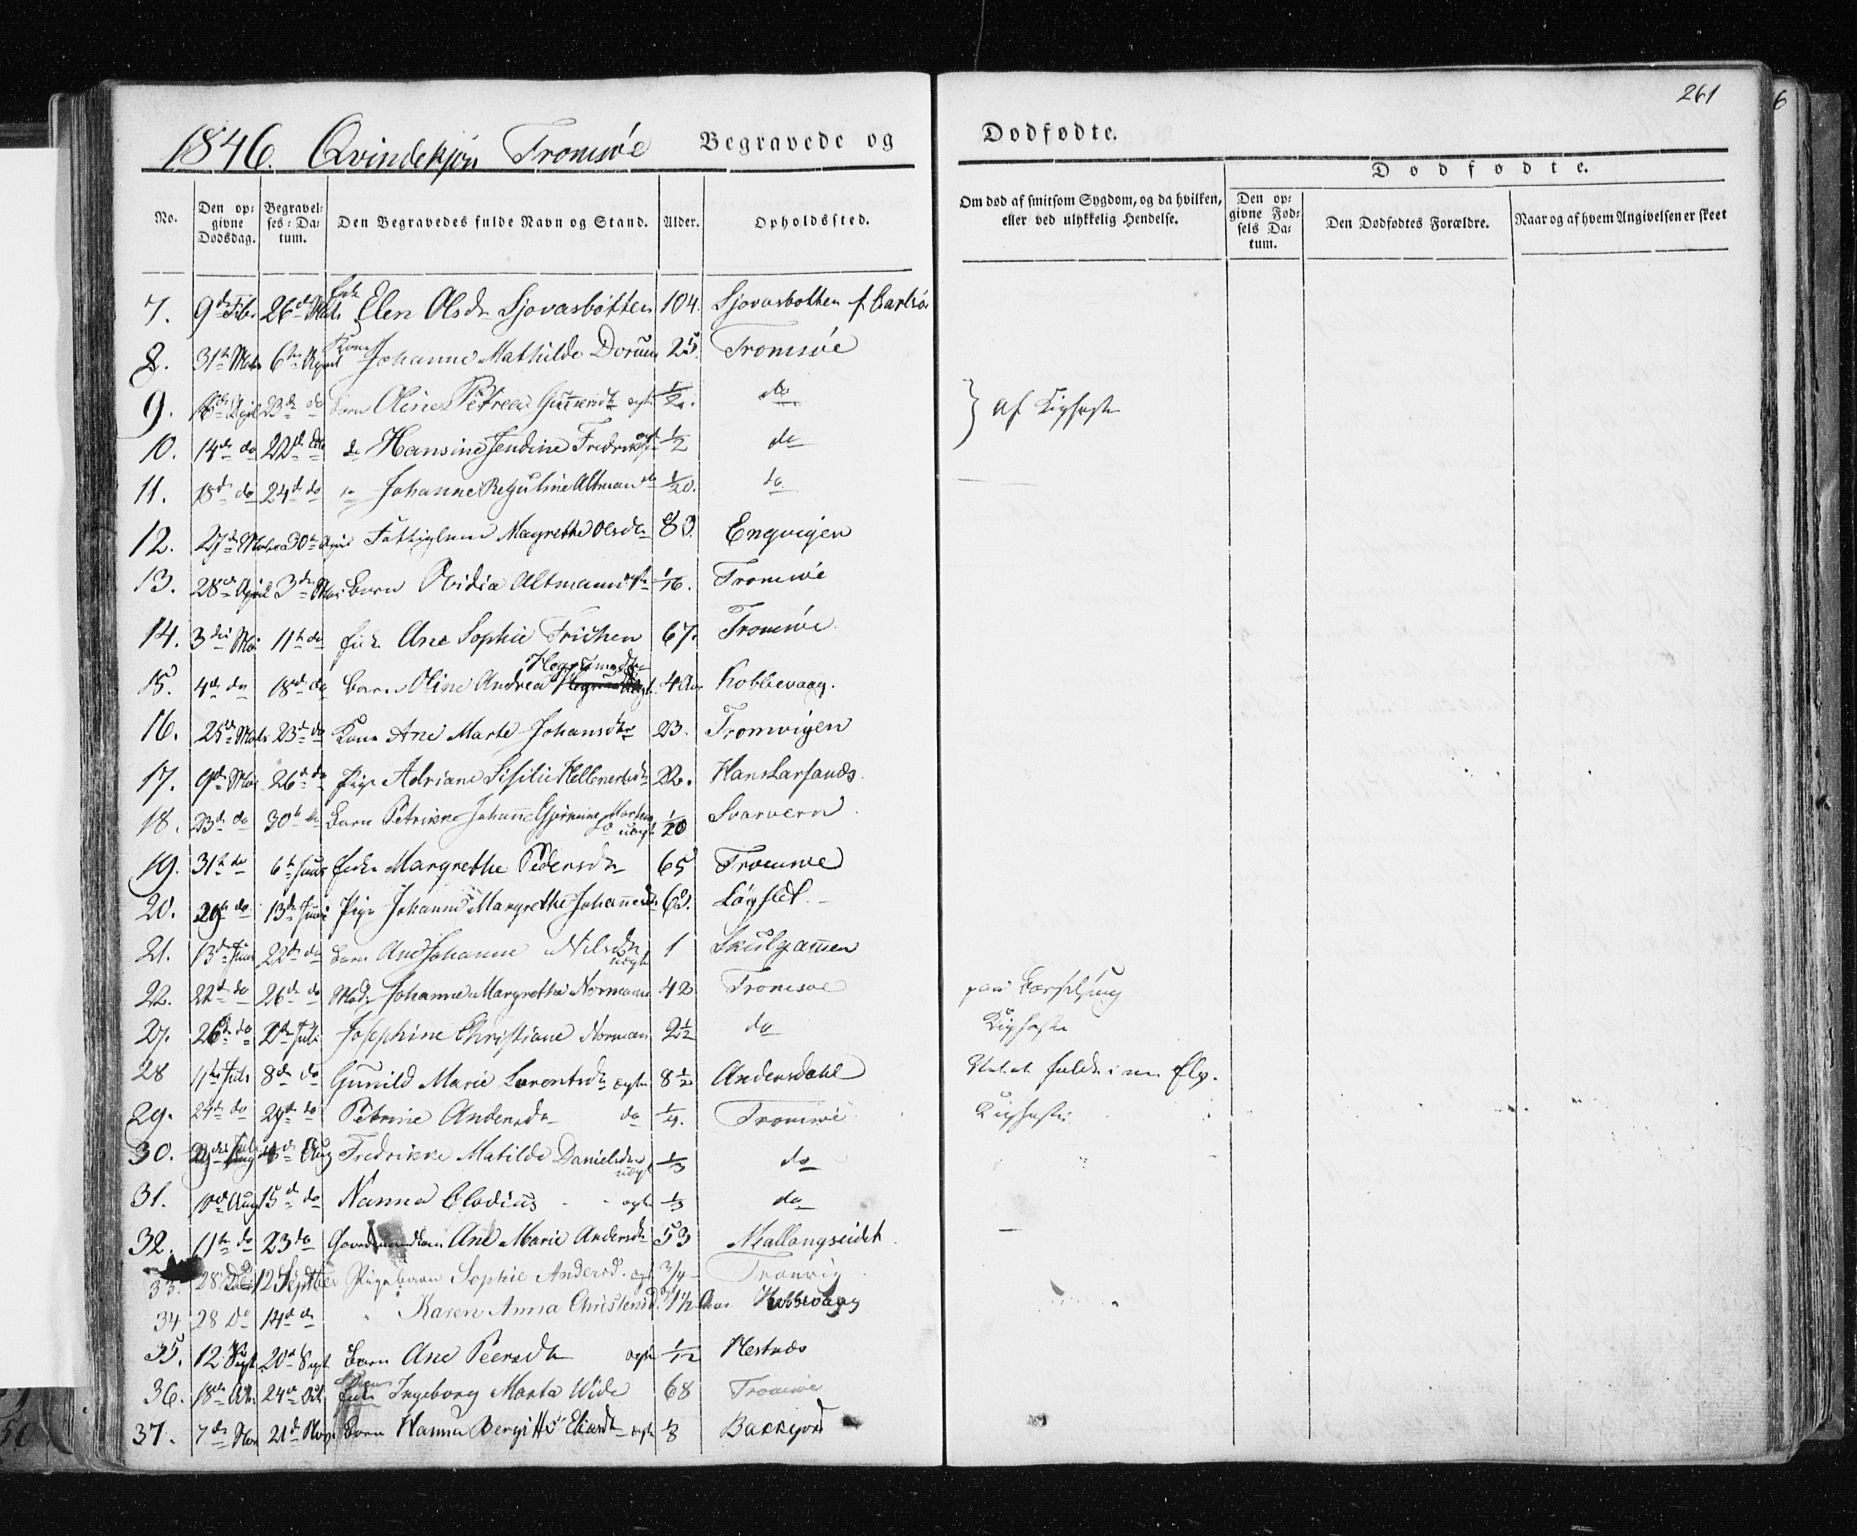 261
1846. Qvindekjøn Tromsøe Begravede og Dødfødte.
Dødfødte.
No. Den opgivne Dødsdag. Begravelses-Datum. Den Begravedes fulde Navn og Stand. Alder. Opholdssted. Om død af smitsom Sygdom, og da hvilken, eller ved ulykkelig Hendelse. Den opgivne Fødsels Datum. Den Dødfødtes Forældre. Naar og af hvem Angivelsen er skeet
7. 9de Febr 26de Marts Enke Elen Olsdr Sjovasbotten 104. Sjovasbotten f Carlsø
8. 31te Marts 6te April Kone Johanne Mathilde Dorum 25. Tromsøe
9. 16de April 23de do Barn Oline Petrea do } af Kighoste
10. 14de do 22de do do Hansine Jendine 1/2 do
11. 18de do 24de do Johanne Reguline Altman do 1/20. do
12. 27de Marts 30te April Fattiglem Magrethe Olsdtr 83. Engvigen
13. 28de April 3de Mai Barn Ovidia Altmann 1/16. Tromsøe
14. 3die Mai 11te do Enke Ane Sophie Frichen 67. Tromsøe
15. 4de do 18de do Barn Oline Andrea 4 Kobbevaag.
16. 25de Marts 23de do Kone Ane Marte Johansdtr 23. Tromvigen
17. 9de Mai 26de do Pige Adriane Sisilie 22. Hans Larsanæs.
18. 23de do 30te do Barn Petrikke Johanne uægte 1/20 Svarvern
19. 31te do 6te Juni Enke Margrethe Pedersdtr 65 Tromsøe
20. 29de do 13de Juni Pige Johanne Margrethe 63. Løgslet.
21. 13de Juni 22de do Barn Ane Johanne Nilsdtr uægte 1 Skulgammen
22. 22de do 26de do Mad. Johanne Margrethe Normann 42 Tromsøe paa Barselseng
27. 26de do 2de Juli Josephine Christiane Norman 2 1/2 do Kighoste
28 4de Juli 8de do Gunild Marie Lorentsdtr ægte 8 1/2 Andersdahl falde i en Elv.
29. 24de do 29de do Petrine Andersdtr do 1/4. Tromsøe Kighoste
30. Aug Fredrikke Matilde Danielsdtr uægte 1/3 do
31. 10de Aug 15de do Nanna Clodius ægte 1/3 do
32. 11te do 23 do Ane Marie Andersdtr 53 Mallangseidet
33. 28 12 Septber Pigebarn Sophie Andersd. ægte 3/4 Tromvig
34 28 Do 14de do " Karen Anna Christensd. 1 1/2 Aar Kobbevaag
35. 12 Sept 20de Sept Barn Ane Peersdtr ægte 1/12 Hestnæs
36. 18de 24de Oct Enke Ingeborg Marta Wide 68 Tromsøe
37. 7de Nov 21de Nov Barn Hanna Bergitte Eliasdtr ægte 1/8 Bakkejord